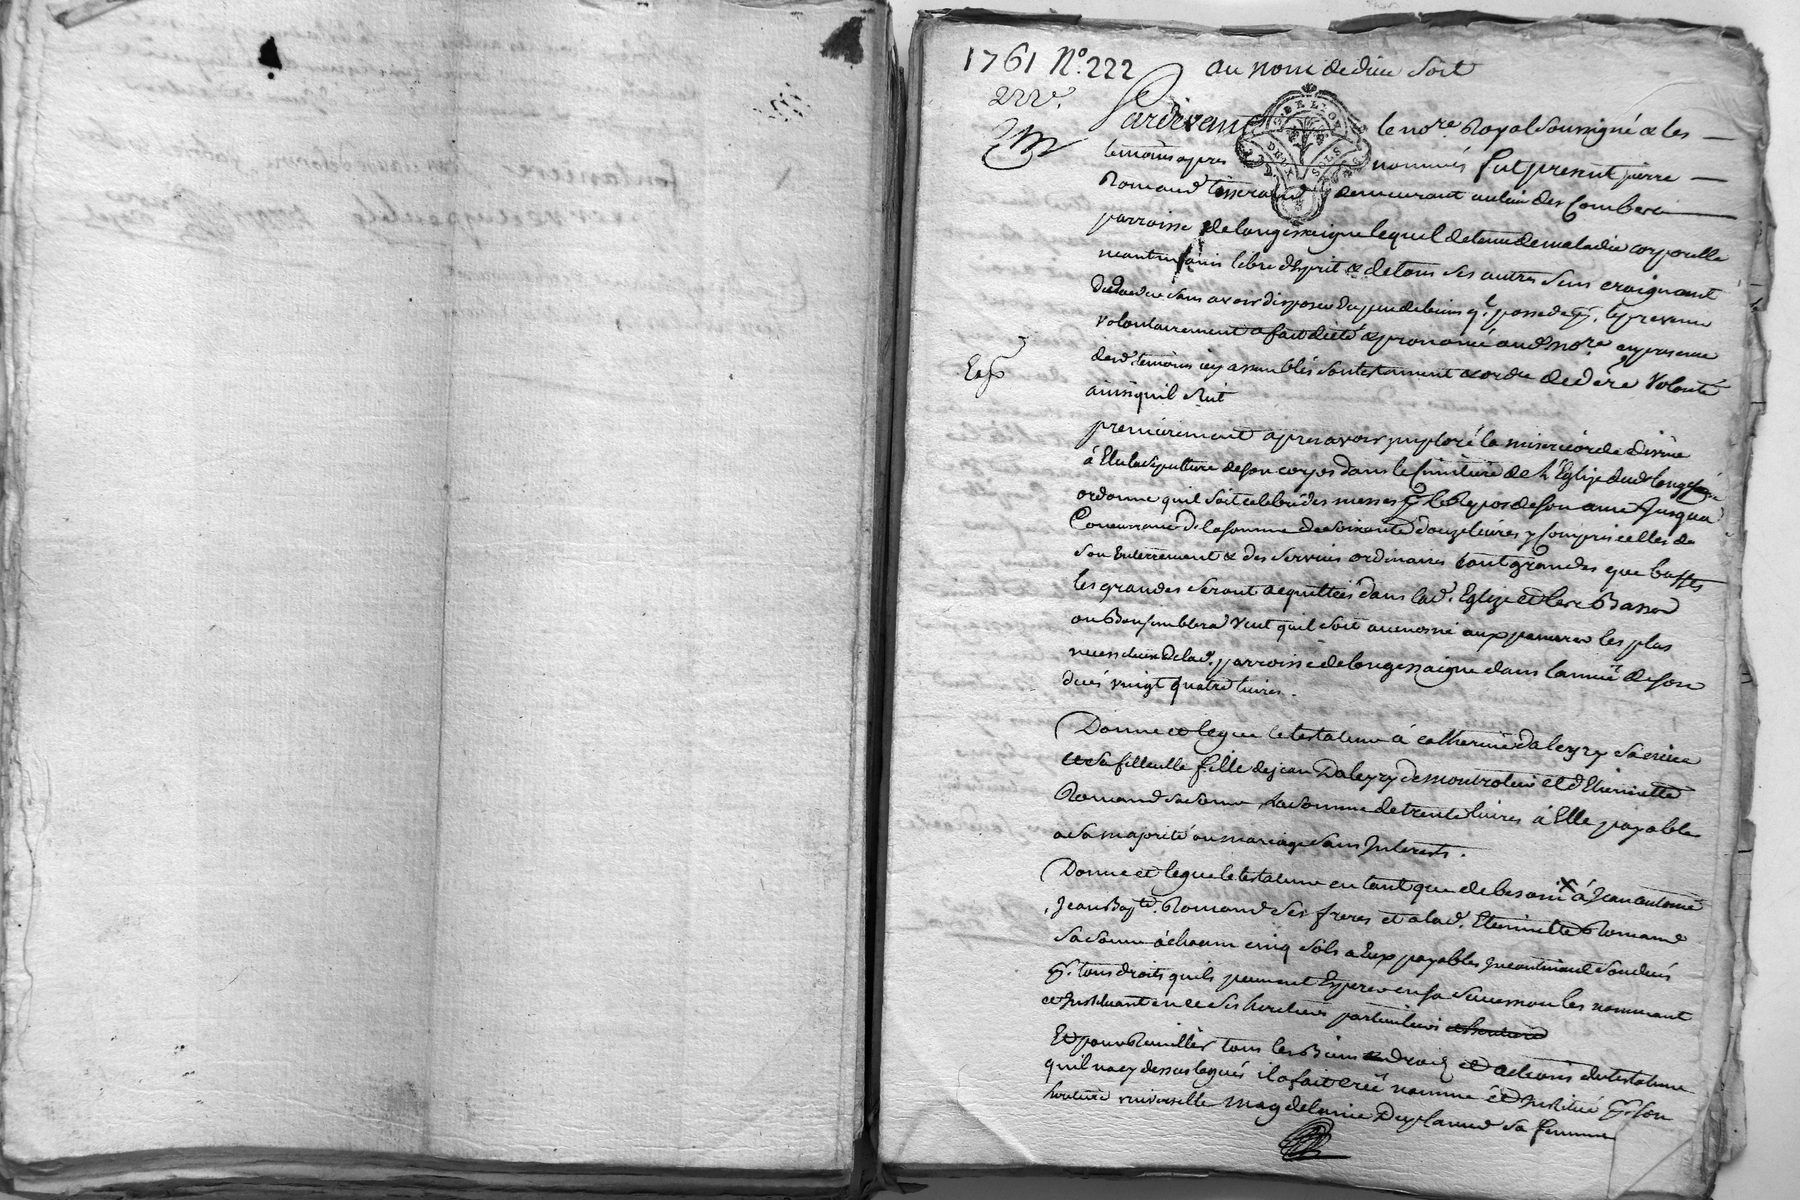 1761 N°. 222
222e.
au nom de dieu soit
Pardevant le no.re Royal soussigné & les
temoins apres nommés fut present pierre
Romand tisserand demeurant au lieu des Combes
parroisse de longessaigne lequel detenu de maladie corporelle
neantmoins libre d'esprit & de tous ses autres sens craignant
de deceder sans avoir disposer du peu de biens q'l possede
volontairement a fait dicté & prononcé aud. no.re en presence
desd. temoins icy assemblés son testament & ordre de dére volonté
ainsi qu'il suit
premierement apres avoir imploré la misericorde divine
à Elu la sepulture de son corps dans le simitiere de l'Eglise dud. longess.e
ordonne quil soit celebré des messes p.r le Repos de son ame Jusqua
Concurrance de la somme de soixante douze livres y compris celles de
son Enterrement & des services ordinaires tant grandes que basses
les grandes seront acquittées dans lad. Eglize et les Basses
ou Bon semblera veut quil soit aumosné aux pauvres les plus
necessiteux de lad. parroisse de longessaigne dans l'année de son
decés vingt quatre livres.
Donne et legue le testateur à Catherine Daleyzy sa niece
et sa filleulle fille de jean Daleyzy de montrotier et d'Etiennette
Romand sa sœur la somme de trente livres à Elle payable
a sa majorité ou mariage sans Interests.
Donne et legue le testateur en tant que de besoin à Jean antoine
Jean Bap.te Romand ses freres et a lad. Etiennette Romand
sa sœur à chacun cinq sols a Eux payables Incontinant son decés
p.r tous droits quils peuvent Esperer en sa succession les nommant
et Instituant en ce ses heritiers particuliers
Et pour Recueillir tous les Biens droits et actions du testateur
qu'il n'a cy dessus legués il a fait créé nommé et Institué p.r son
heritiere universelle Magdelaine Duplanud sa femme